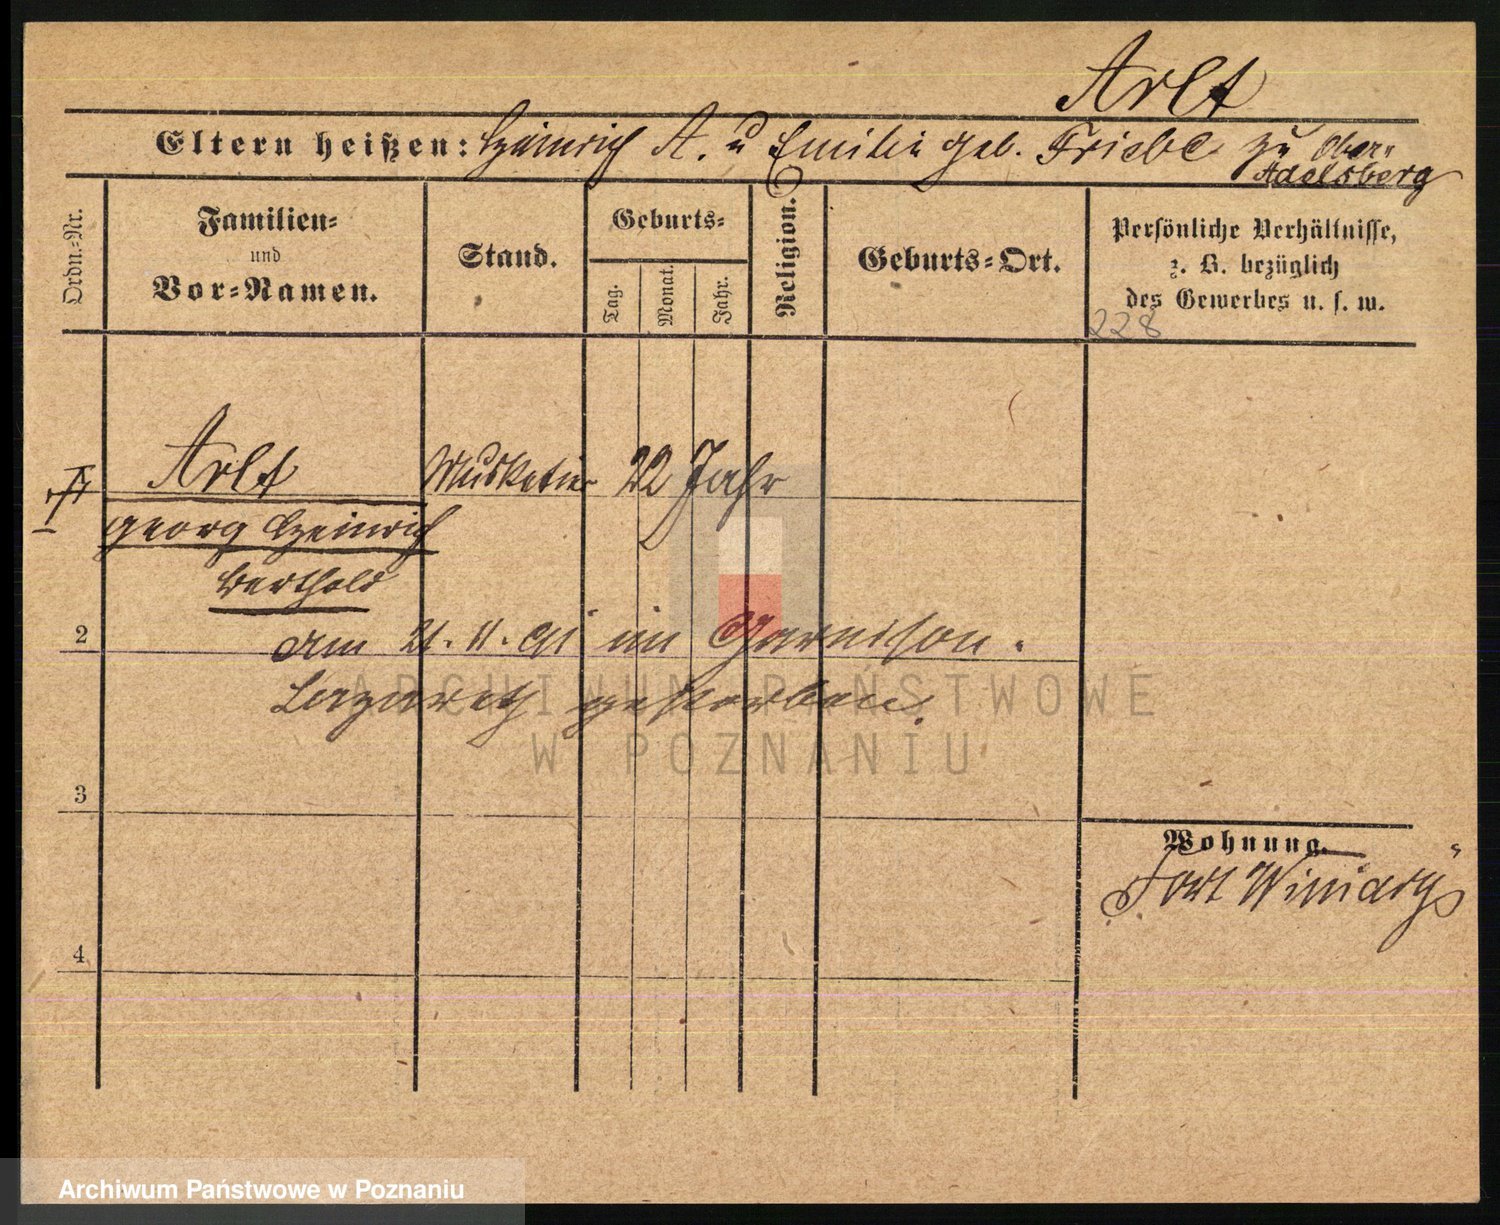 Arlt
Eltern heißen: Heinrich A. u Emilie geb. Friebe zu Ober-
Adelsberg
Ordn.-Nr.
Familien-
und
Vor-Namen.
Stand.
Geburts-
Tag.
Monat.
Jahr.
Religion.
Geburts-Ort.
Persönliche Verhältnisse,
z. B. bezüglich
des Gewerbes u. s. w.
228
Arlt Musketier 22 Jahr
Georg Heinrich
Berthold
2 am 21. 11. 91 im Garnison-
Lazareth gestorben.
ARCHIWUM PAŃSTWOWE
W POZNANIU
3
Wohnung.
Fort Winiary
4
Archiwum Państwowe w Poznaniu